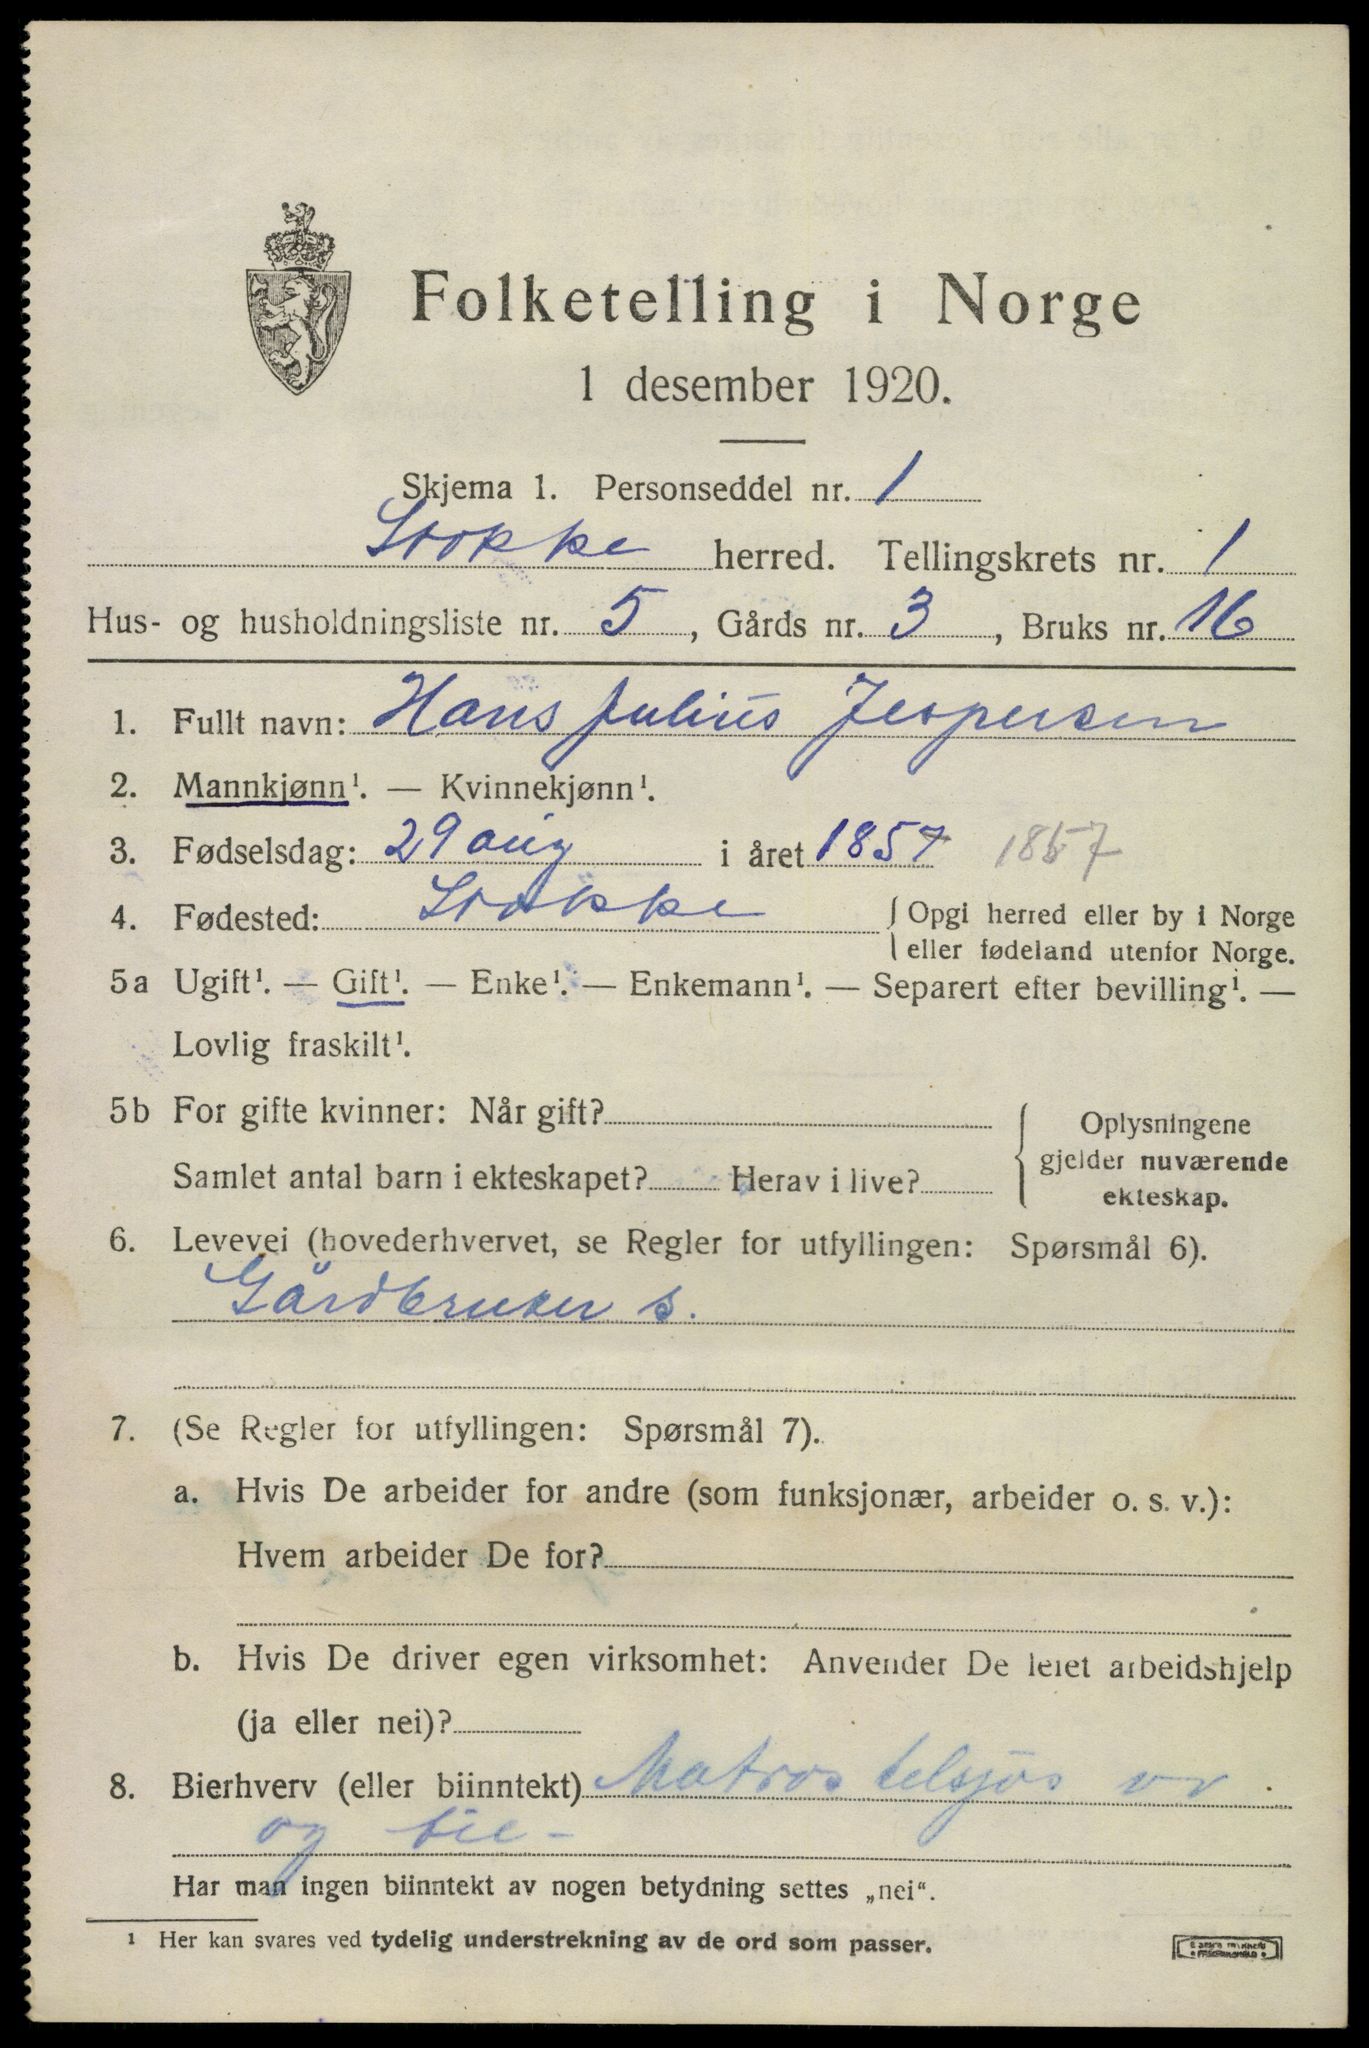 Folketelling i Norge
1 desember 1920.
Skjema 1. Personseddel nr. 1
Stokke herred. Tellingskrets nr. 1
Hus- og husholdningsliste nr. 5, Gårds nr. 3, Bruks nr. 16
1. Fullt navn: Hans Julius Jespersen
2. Mannkjønn¹. — Kvinnekjønn¹.
3. Fødselsdag: 29 aug i året 1857 1857
4. Fødested: Stokke { Opgi herred eller by i Norge
eller fødeland utenfor Norge.
5a Ugift¹. — Gift¹. — Enke¹. — Enkemann¹. — Separert efter bevilling¹. —
Lovlig fraskilt¹.
5b For gifte kvinner: Når gift?
Samlet antal barn i ekteskapet? Herav i live?
{ Oplysningene
gjelder nuværende
ekteskap.
6. Levevei (hovederhvervet, se Regler for utfyllingen: Spørsmål 6).
Gårdbruker s.
7. (Se Regler for utfyllingen: Spørsmål 7).
a. Hvis De arbeider for andre (som funksjonær, arbeider o. s. v.):
Hvem arbeider De for?
b. Hvis De driver egen virksomhet: Anvender De leiet arbeidshjelp
(ja eller nei)?
8. Bierhverv (eller biinntekt) Matros tilsjøs
og
Har man ingen biinntekt av nogen betydning settes „nei“.
¹ Her kan svares ved tydelig understrekning av de ord som passer.